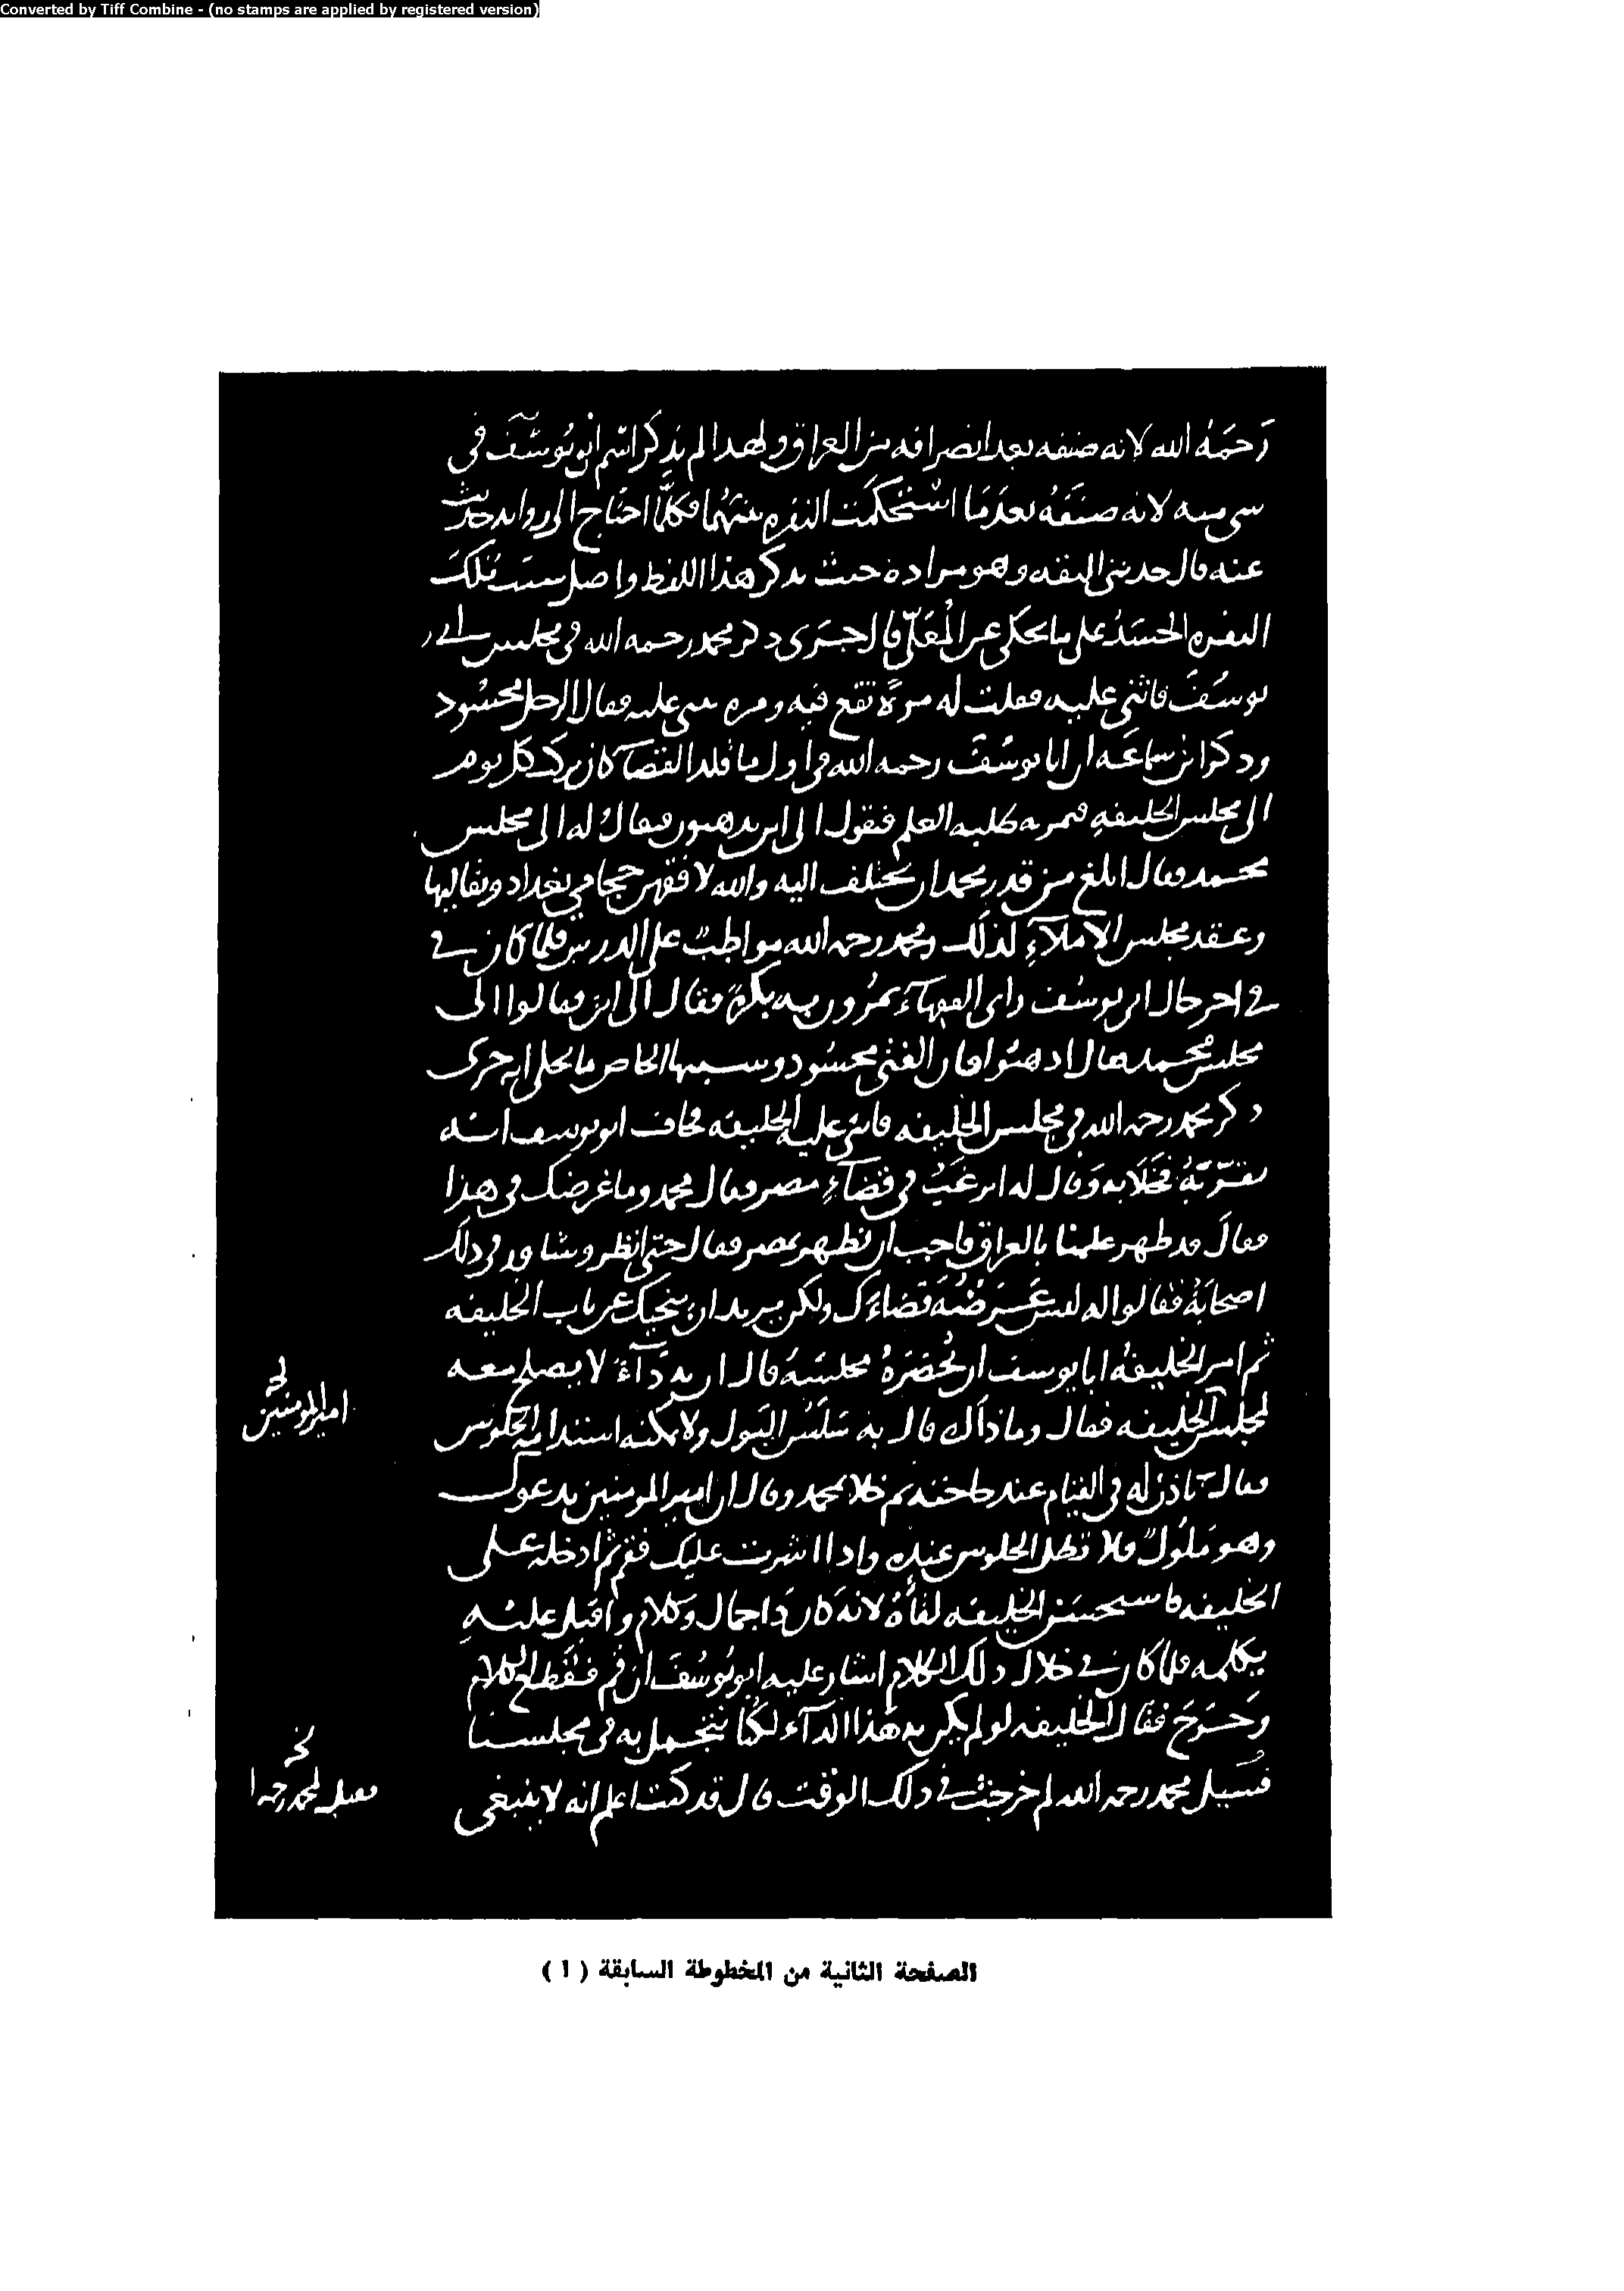 Converted by Tiff Combine - (no stamps are applied by registered version)
رَحمَهُ الله لانه صنفه بعد انصرافه من العراق ولهذا لم يذكر اسم ابي يوسُف في
شي منه لانه صنفَهُ بعدَمَا استحكمت النفره بينهُما وكلما احتاج الى روايه حديث
عنه قال حدثني الثقه وهو مراده حيث يذكر هذا اللفظ واصل سبب تلك
النفره الحسَدُ على ما يحكى عن المُعَلَّى قال جَرَى ذكر محمد رحمه الله في مجلس ابي
يوسُفَ فاثنى عليه فقلت له مرةً تقع فيه ومره تثنى عليه فقال الرجل محسُود
وذكر ابن سماعَه ان ابا يوسُفَ رحمه الله في اول ما قلد القضآ كان يركب كل يوم
الى مجلس الخليفهِ فيمر به طلبه العلم فيقول الى اين تذهبون فيقال له الى مجلس
محمد فقال ابلغ من قدر محمد ان يختلف اليه والله لافقهن حجامي بغداد وبقاليها
وعقد مجلس الاملآءِ لذلك ومحمد رحمه الله مواظبٌ على الدرس فلما كان في
في اخر حال ابي يوسُف راى الفقهآءَ يمرُّون به بكرةً فقال الى اين فقالوا الى
مجلس محمد فقال اذهبوا فان الفتى محسُود وسببها الخاص ما يحكى انه جرى
ذكر محمد رحمه الله في مجلس الخليفه فاثنى عليه الخليفه فخاف ابو يوسف انه
يقرّبَهُ فخَلا به وَقال له اترغَبُ في قضآءِ مصر فقال محمد وما غرضك في هذا
فقالَ قد ظهر علمنا بالعراق فاحب ان يظهر بمصر فقال حتى انظر وشاور في ذلك
اصحابَهُ فقالوا له ليسَ غَرَضُهُ قضاءَك ولكن يريد ان ينحيك عن باب الخليفه
ثم امر الخليفهُ ابا يوسف ان يُحضرَهُ مجلسَهُ قال ان به دَآءً لا يصلح معه
لمجلس الخليفه فقال وما ذاك قال به سَلَسُ البَول ولا يمكنه استدامه الجلوس
امير المومنين
فقال نأذن له في القيام عند حاجته ثم خلا بمحمد وقال ان امير المومنين يدعوك
وهو مَلُولٌ فلا تطل الجلوس عنده واذا اشرت عليك فقم ثم ادخله على
الخليفه فاستحسَن الخليفه لقاءهُ لانه كان ذا جمال وكلام واقبل عليْهِ
يكلمه فلما كان في خلال ذلك الكلام اشار عليه ابو يُوسُفَ ان قم فقطع الكلام
وَخرَجَ فقال الخليفه لو لم يكن به هَذا الدآء لكُنا نتجمل به في مجلسنا
فسيل محمد رحمه الله لم خرجت في ذلك الوقت قال قد كنت اعلم انه لا ينبغي
فقيل لمحمد رحمه ا
الصفحة الثانية من المخطوطة السابقة ( ١ )